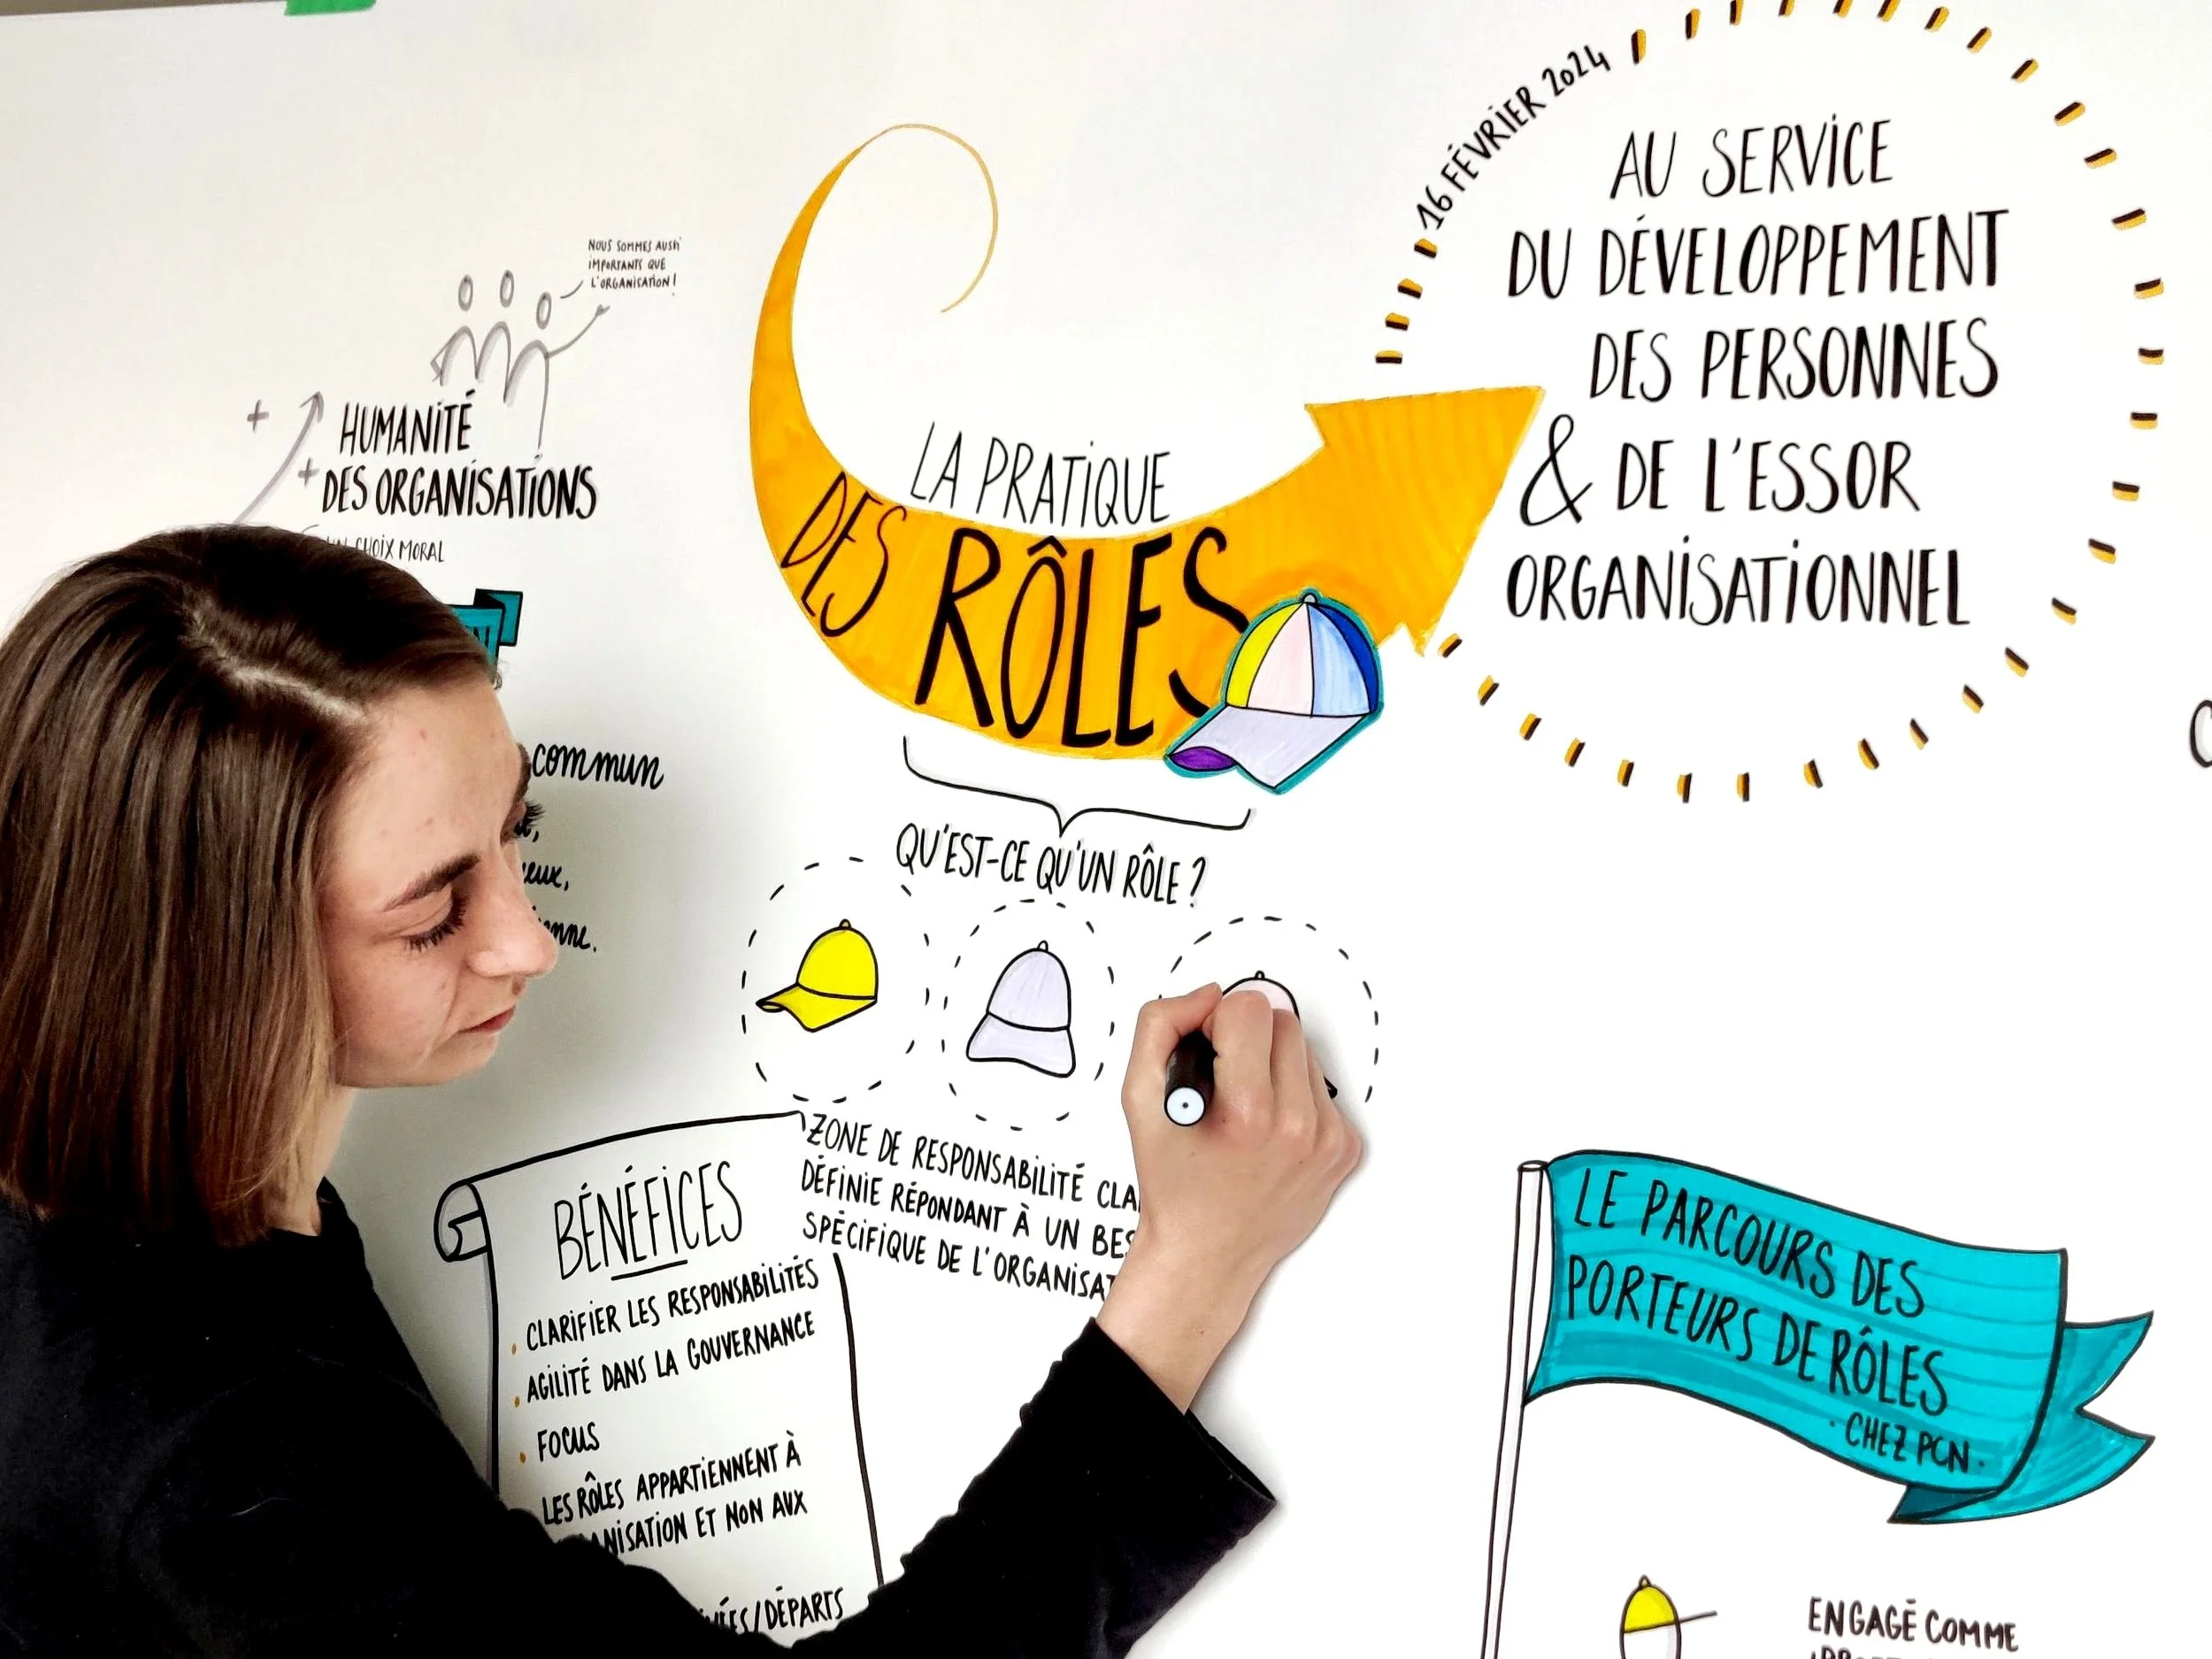 NOUS SOMMES AUSSI
IMPORTANTS QUE
L'ORGANISATION!
+
HUMANITÉ
+
DES ORGANISATIONS
CHOIX MORAL
commun
LA PRATIQUE
DES RÔLES
16 FÉVRIER 2024
AU SERVICE
DU DÉVELOPPEMENT
DES PERSONNES
& DE L'ESSOR
ORGANISATIONNEL
QU'EST-CE QU'UN RÔLE ?
ZONE DE RESPONSABILITÉ CLA
DÉFINIE RÉPONDANT À UN BES
SPÉCIFIQUE DE L'ORGANISAT
BÉNÉFICES
• CLARIFIER LES RESPONSABILITÉS
• AGILITÉ DANS LA GOUVERNANCE
• FOCUS
LES RÔLES APPARTIENNENT À
ANISATION ET NON AUX
ÉES/DÉPARTS
LE PARCOURS DES
PORTEURS DE RÔLES
· CHEZ PCN ·
ENGAGÉ COMME